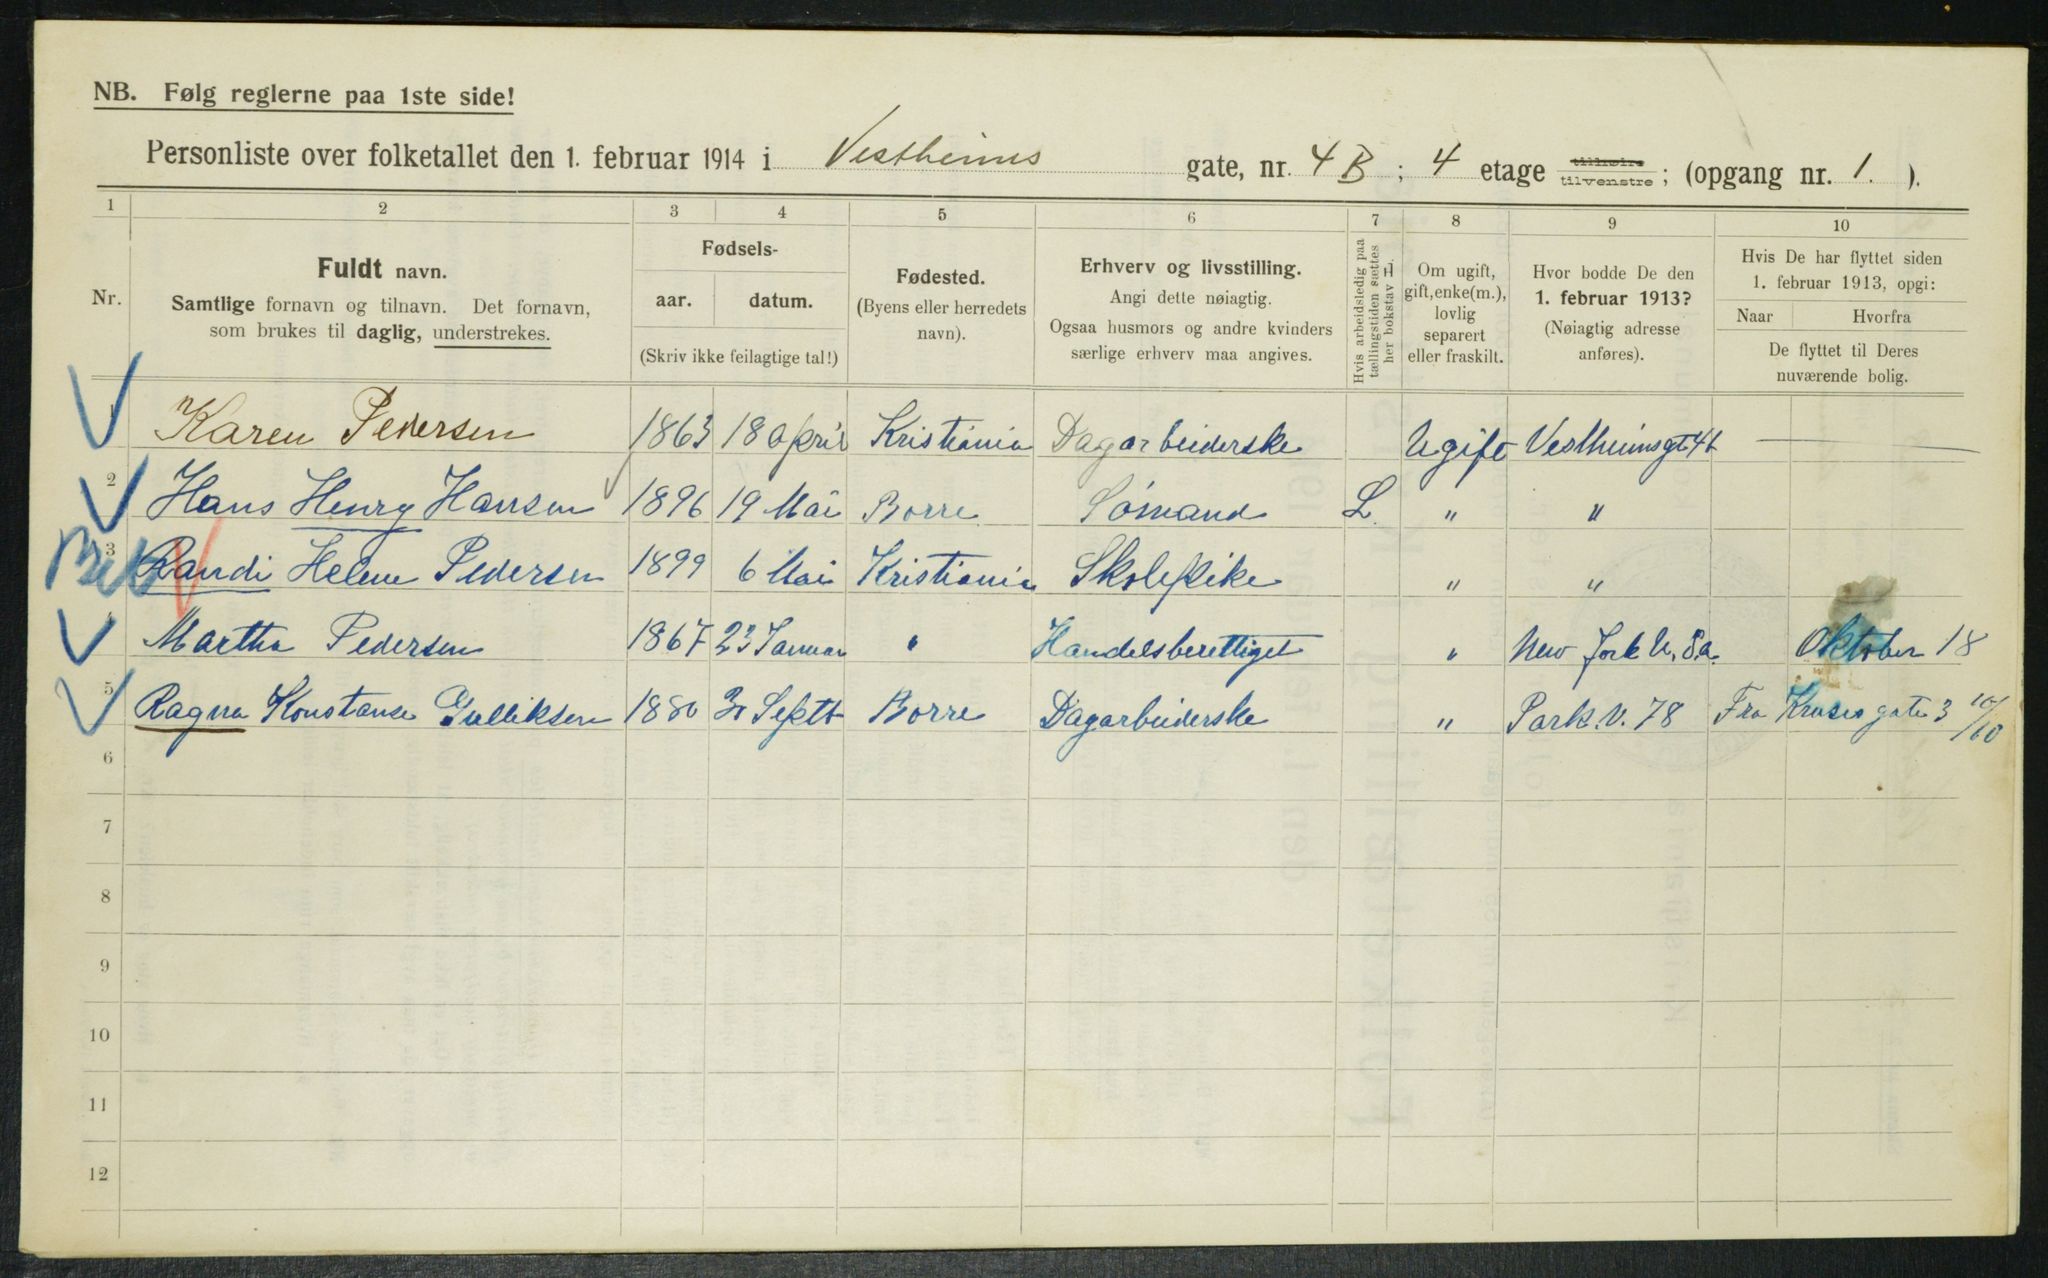 NB. Følg reglerne paa 1ste side!
Personliste over folketallet den 1. februar 1914 i Vestheims gate, nr. 4 B ; 4 etage tilhøire tilvenstre ; (opgang nr. 1. ).
1 2 3 4 5 6 7 8 9 10
Nr.
Fuldt navn.
Samtlige fornavn og tilnavn. Det fornavn,
som brukes til daglig, understrekes.
Fødsels-
aar. datum.
(Skriv ikke feilagtige tal!)
Fødested.
(Byens eller herredets
navn).
Erhverv og livsstilling.
Angi dette nøiagtig.
Ogsaa husmors og andre kvinders
særlige erhverv maa angives.
Hvis arbeidsledig paa
tællingstiden sættes
her bokstav L.
Om ugift,
gift, enke(m.),
lovlig
separert
eller fraskilt.
Hvor bodde De den
1. februar 1913?
(Nøiagtig adresse
anføres).
Hvis De har flyttet siden
1. februar 1913, opgi:
Naar Hvorfra
De flyttet til Deres
nuværende bolig.
1 Karen Pedersen 1863 18 april Kristiania Dagarbeiderske Ugift Vestheimsgt 4b
2 Hans Henry Hansen 1896 19 Mai Borre Sömand L " "
3 Randi Helene Pedersen 1899 6 Mai Kristiania Skolepike " "
4 Martha Pedersen 1867 23 Januar " Handelsberettiget " New York U.S.a. Oktober 18
5 Ragna Konstanse Gulliksen 1880 30 Septb Borre Dagarbeiderske " Park.V. 78 Fra Kruses gate 3 10/10
6
7
8
9
10
11
12